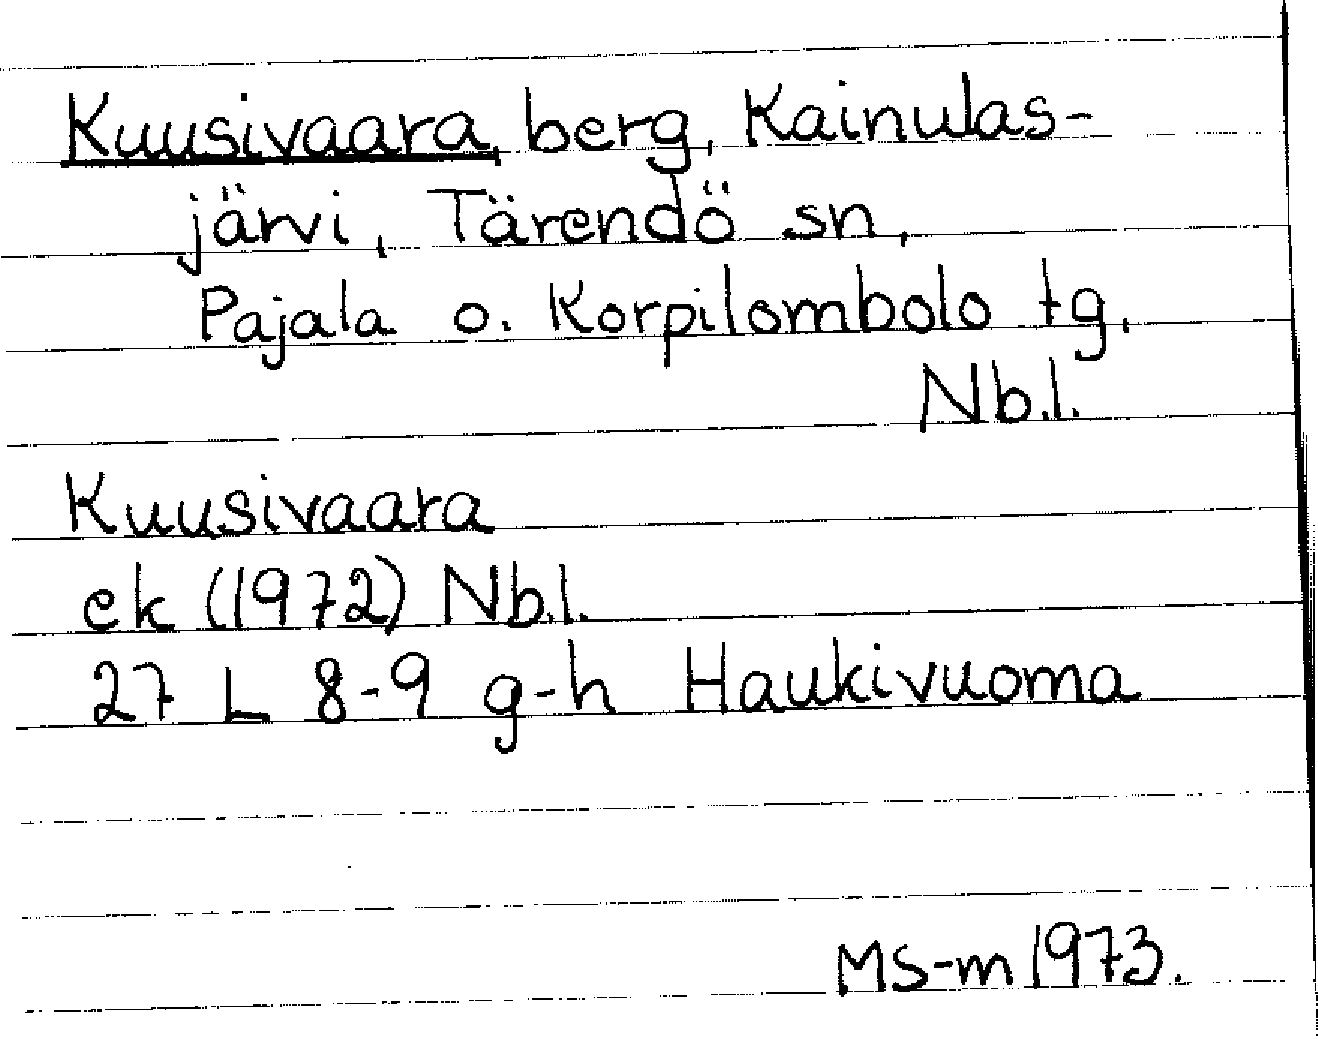 Kuusivaara, berg, Kainulas-
järvi, Tärendö sn,
Pajala o. Korpilombolo tg,
Nb.l.
Kuusivaara
ek (1972) Nb.l.
27 L 8-9 g-h Haukivuoma
MS-m 1973.